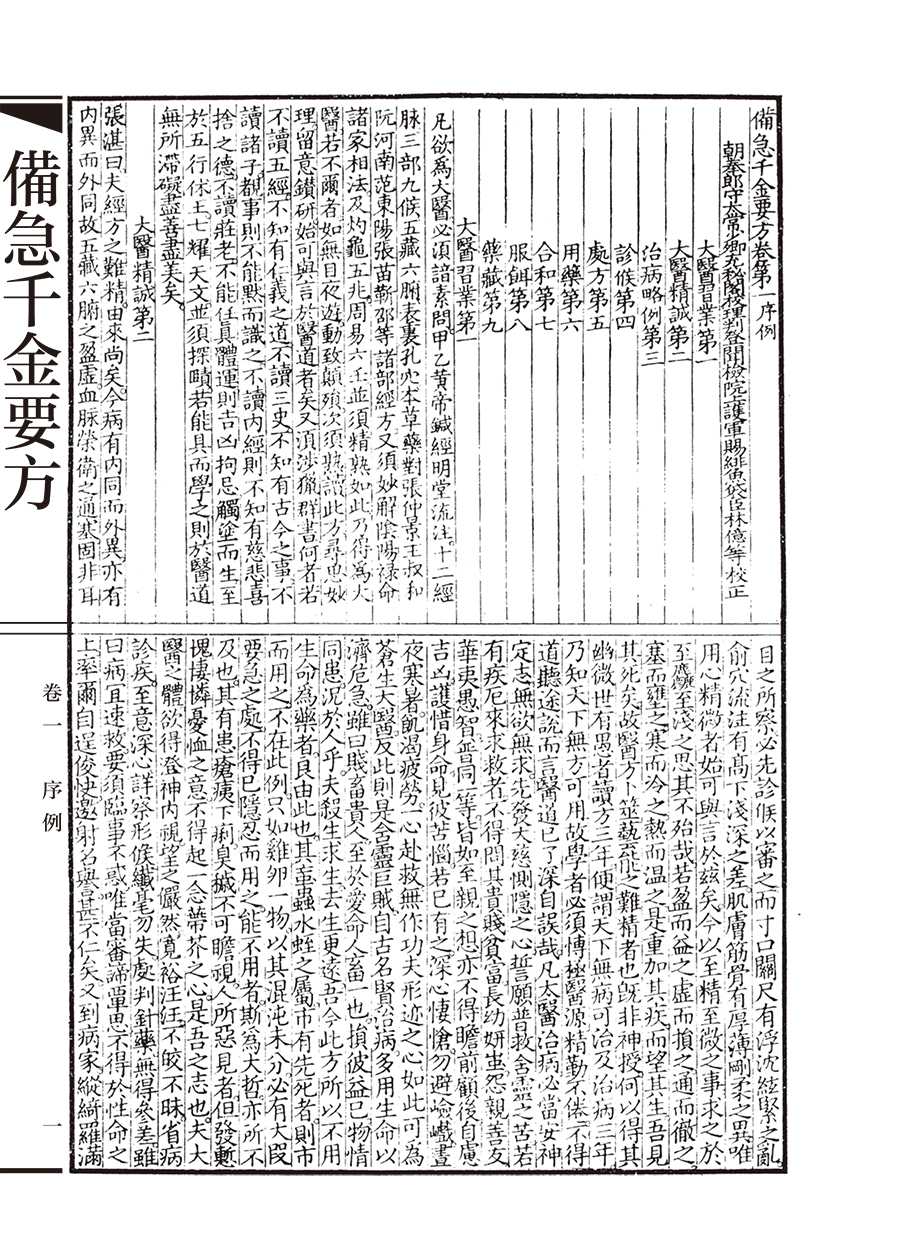 備急千金要方卷第一序例
朝奉郎守太常少卿充秘閣校理判登聞檢院上護軍賜緋魚袋臣林億等校正
大醫習業第一
大醫精誠第二
治病略例第三
診候第四
處方第五
用藥第六
合和第七
服餌第八
藥藏第九
大醫習業第一
凡欲爲大醫必須諳素問甲乙黃帝鍼經明堂流注十二經
脉三部九候五藏六腑表裏孔穴本草藥對張仲景王叔和
阮河南范東陽張苗靳邵等諸部經方又須妙解陰陽祿命
諸家相法及灼龜五兆周易六壬並須精熟如此乃得爲大
醫若不爾者如無目夜遊動致顛殞次須熟讀此方尋思妙
理留意鑽研始可與言於醫道者矣又須涉獵群書何者若
不讀五經不知有仁義之道不讀三史不知有古今之事不
讀諸子覩事則不能默而識之不讀內經則不知有慈悲喜
捨之德不讀莊老不能任真體運則吉凶拘忌觸塗而生至
於五行休王七耀天文並須探賾若能具而學之則於醫道
無所滯礙盡善盡美矣
大醫精誠第二
張湛曰夫經方之難精由來尚矣今病有內同而外異亦有
內異而外同故五藏六腑之盈虛血脉榮衛之通塞固非耳
目之所察必先診候以審之而寸口關尺有浮沈絃緊之亂
俞穴流注有高下淺深之差肌膚筋骨有厚薄剛柔之異唯
用心精微者始可與言於茲矣今以至精至微之事求之於
至麤至淺之思其不殆哉若盈而益之虛而損之通而徹之
塞而壅之寒而冷之熱而温之是重加其疾而望其生吾見
其死矣故醫方卜筮藝能之難精者也既非神授何以得其
幽微世有愚者讀方三年便謂天下無病可治及治病三年
乃知天下無方可用故學者必須博極醫源精勤不倦不得
道聽途說而言醫道已了深自誤哉凡大醫治病必當安神
定志無欲無求先發大慈惻隱之心誓願普救含靈之苦若
有疾厄來求救者不得問其貴賤貧富長幼妍蚩怨親善友
華夷愚智並同一等皆如至親之想亦不得瞻前顧後自慮
吉凶護惜身命見彼苦惱若己有之深心悽愴勿避嶮巇晝
夜寒暑飢渴疲勞一心赴救無作功夫形迹之心如此可爲
蒼生大醫反此則是含靈巨賊自古名賢治病多用生命以
濟危急雖曰賤畜貴人至於愛命人畜一也損彼益己物情
同患況於人乎夫殺生求生去生更遠吾今此方所以不用
生命為藥者良由此也其䖟蟲水蛭之屬市有先死者則市
而用之不在此例只如雞卵一物以其混沌未分必有大段
要急之處不得已隱忍而用之能不用者斯爲大哲亦所不
及也其有患瘡痍下痢臭穢不可瞻視人所惡見者但發慙
愧悽憐憂恤之意不得起一念蔕芥之心是吾之志也夫大
醫之體欲得澄神內視望之儼然寛裕汪汪不皎不昧省病
診疾至意深心詳察形候纖毫勿失處判針藥無得參差雖
曰病宜速救要須臨事不惑唯當審諦覃思不得於性命之
上率爾自逞俊快邀射名譽甚不仁矣又到病家縱綺羅滿
備急千金要方
卷一 序例
一